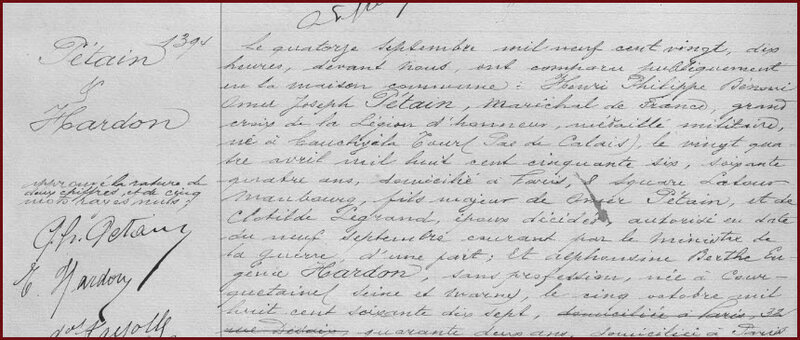 1394
Pétain
&
Hardon
approuvé la rature de
deux chiffres, et de cinq
mots rayés nuls.
Ph. Pétain
E. Hardon
Fayolle
Le quatorze septembre mil neuf cent vingt, dix
heures, devant nous, ont comparu publiquement
en la maison commune : Henri Philippe Bénoni
Omer Joseph Pétain, Maréchal de France, grand
croix de la Légion d'honneur, médaillé militaire,
né à Cauchy à la Tour (Pas de Calais), le vingt qua
tre avril mil huit cent cinquante six, soixante
quatre ans, domicilié à Paris, 8 Square Latour
Maubourg, fils majeur de Omer Pétain, et de
Clotilde Legrand, époux décédés, autorisé en date
du neuf septembre courant par le Ministre de
la guerre, d'une part ; Et Alphonsine Berthe Eu
génie Hardon, sans profession, née à Cour
quetaine (Seine et Marne), le cinq octobre mil
huit cent soixante dix sept, domiciliée à Paris, 32
rue Desaix, quarante deux ans, domiciliée à Paris